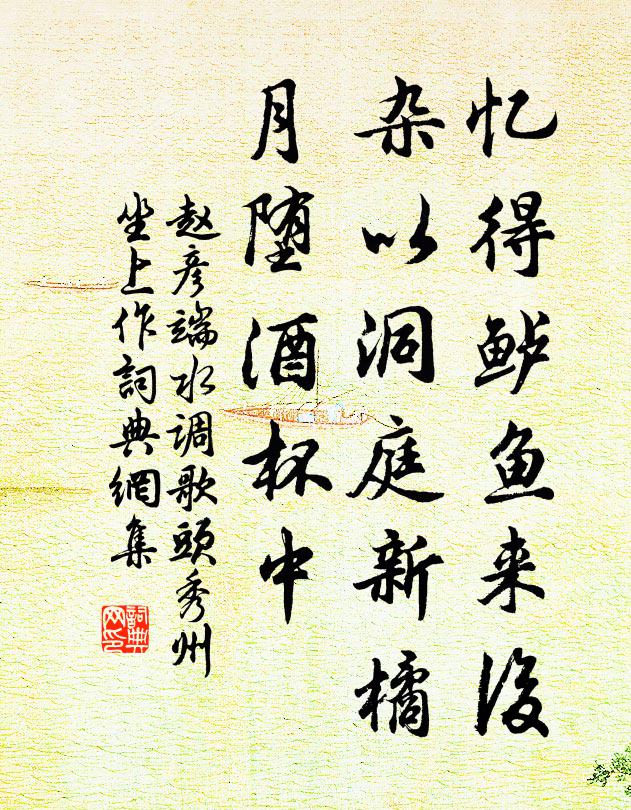 忆得鲈鱼来后
杂以洞庭新橘
月堕酒杯中
赵彦端水调歌頭秀州
坐上作詞典網集
詞典网印